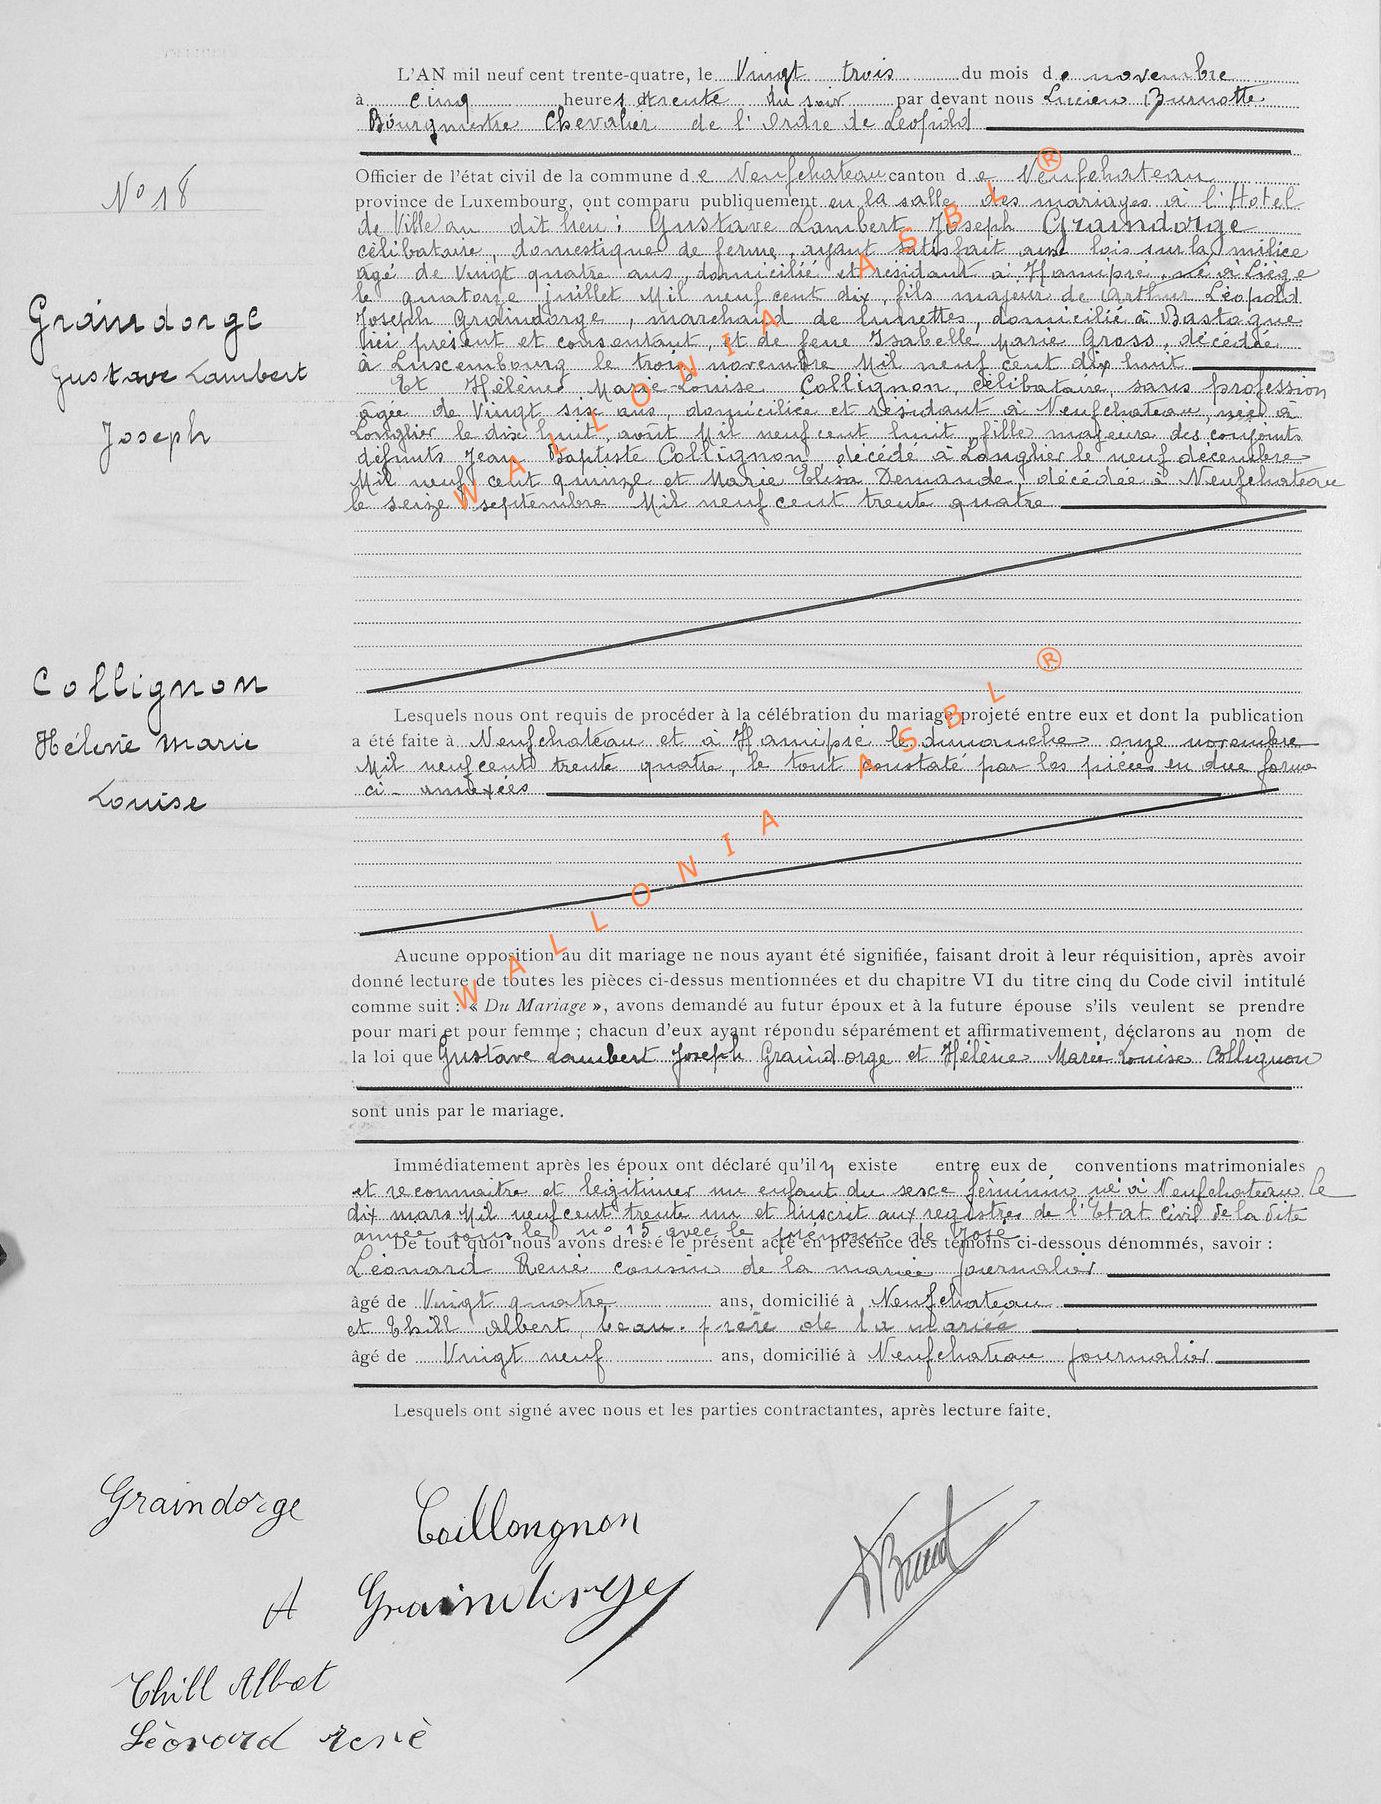 L'AN mil neuf cent trente-quatre, le Vingt trois du mois de novembre
à cinq heures trente du soir par devant nous Lucien Burnotte
Bourgmestre Chevalier de l'Ordre de Léopold
Officier de l'état civil de la commune de Neufchateau canton de Neufchateau
province de Luxembourg, ont comparu publiquement en la salle des mariages à l'Hotel
de Ville au dit lieu : Gustave Lambert Joseph Graindorge
célibataire, domestique de ferme, ayant satisfait aux lois sur la milice
agé de Vingt quatre ans, domicilié et résidant à Hamipré, né à Liège
le quatorze juillet Mil neuf cent dix, fils majeur de Arthur Léopold
Joseph Graindorge, marchand de lunettes, domicilié à Bastogne
ici présent et consentant, et de feue Isabelle Marie Gross, décédée
à Luxembourg le trois novembre Mil neuf cent dix huit
Et Hélène Marie Louise Collignon, célibataire, sans profession
âgée de Vingt six ans, domiciliée et résidant à Neufchateau, née à
Longlier le dix huit août Mil neuf cent huit, fille majeure des conjoints
défunts Jean Baptiste Collignon, décédé à Longlier le neuf décembre
Mil neuf cent quinze et Marie Elisa Demande, décédée à Neufchateau
le seize septembre Mil neuf cent trente quatre
No 18
Graindorge
Gustave Lambert
Joseph
Collignon
Hélène Marie
Louise
Lesquels nous ont requis de procéder à la célébration du mariage projeté entre eux et dont la publication
a été faite à Neufchateau et à Hamipré le dimanche onze novembre
Mil neuf cent trente quatre, le tout constaté par les pièces en due forme
ci-annexées
Aucune opposition au dit mariage ne nous ayant été signifiée, faisant droit à leur réquisition, après avoir
donné lecture de toutes les pièces ci-dessus mentionnées et du chapitre VI du titre cinq du Code civil intitulé
comme suit : « Du Mariage », avons demandé au futur époux et à la future épouse s'ils veulent se prendre
pour mari et pour femme ; chacun d'eux ayant répondu séparément et affirmativement, déclarons au nom de
la loi que Gustave Lambert Joseph Graindorge et Hélène Marie Louise Collignon
sont unis par le mariage.
Immédiatement après les époux ont déclaré qu'il y existe entre eux de conventions matrimoniales
et reconnaitre et légitimer un enfant du sexe féminin né à Neufchateau le
dix mars Mil neuf cent trente un et inscrit aux registres de l'Etat Civil de la dite
année sous le n° 15 avec le prénom de José
De tout quoi nous avons dressé le présent acte en présence des témoins ci-dessous dénommés, savoir :
Léonard René cousin de la mariée journalier
âgé de Vingt quatre ans, domicilié à Neufchateau
et Thill Albert, beau-frère de la mariée
âgé de Vingt neuf ans, domicilié à Neufchateau journalier
Lesquels ont signé avec nous et les parties contractantes, après lecture faite.
Graindorge
Coillongnon
A Graindorge
Thill Albet
Lèonard renè
WALLONIA ASBL ®
WALLONIA ASBL ®